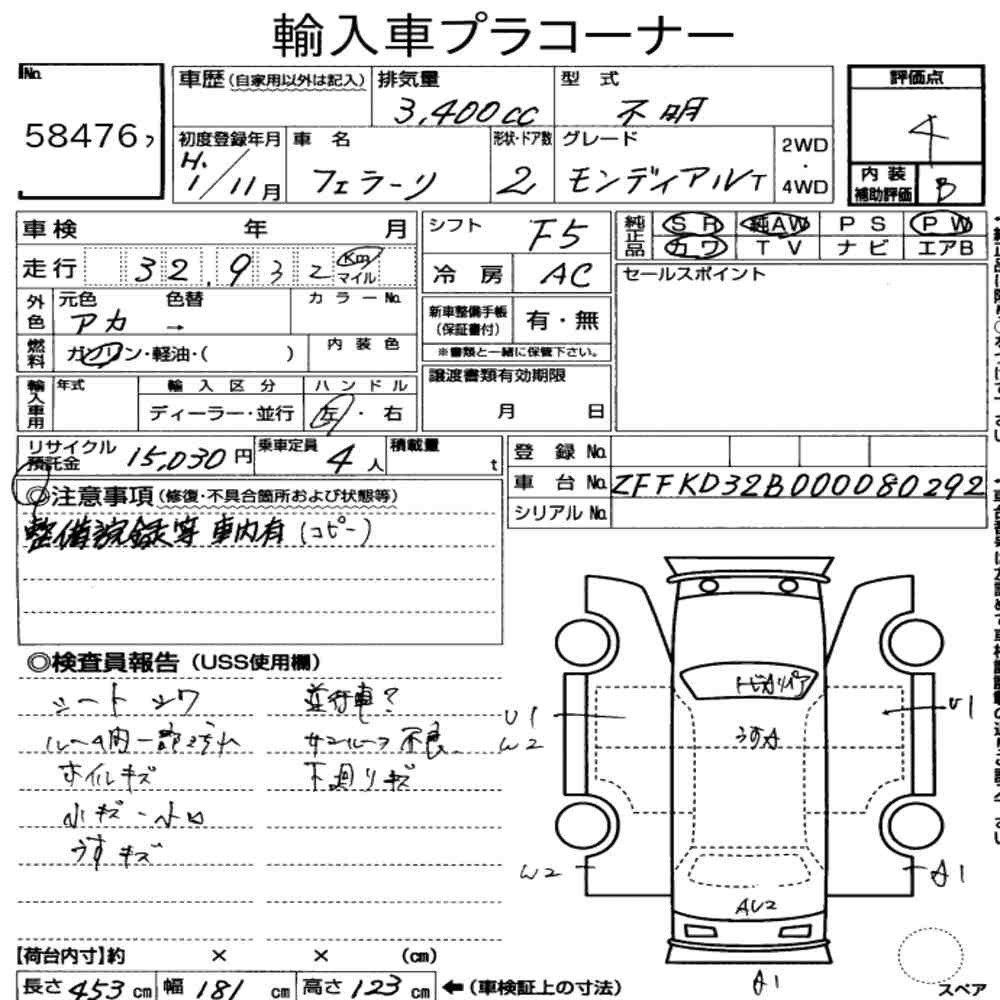 輸入車プラコーナー
No.
58476フ
車歴(自家用以外は記入)
排気量
3,400cc
型 式
不明
評価点
4
初度登録年月
H.1/11月
車 名
フェラーリ
形状・ドア数
2
グレード
モンディアルT
2WD
・
4WD
内装
補助評価
B
車検 年 月
シフト
F5
純正品
SR 純AW PS PW
カワ TV ナビ エアB
走行 32,932 Km
マイル
冷房
AC
セールスポイント
外色
元色 色替
アカ →
カラーNo.
新車整備手帳
(保証書付)
有・無
※書類と一緒に保管下さい。
燃料
ガソリン・軽油・( )
内装色
輸入車用
年式
輸入区分
ディーラー・並行
ハンドル
左・右
譲渡書類有効期限
月 日
リサイクル
預託金
15,030円
乗車定員
4人
積載量
t
登録No.
車台No. ZFFKD32B000080292
シリアルNo.
◎注意事項(修復・不具合箇所および状態等)
整備記録等 車内有(コピー)
◎検査員報告(USS使用欄)
シート シワ
並行車?
サンルーフ不良
ホイルキズ
下廻りキズ
小キズ・小凹
うすキズ
トビ石リペア
うすA
U1
W2
U1
W2
A1
AU2
A1
【荷台内寸】約 × × (cm)
長さ453cm 幅181cm 高さ123cm ←(車検証上の寸法)
スペア